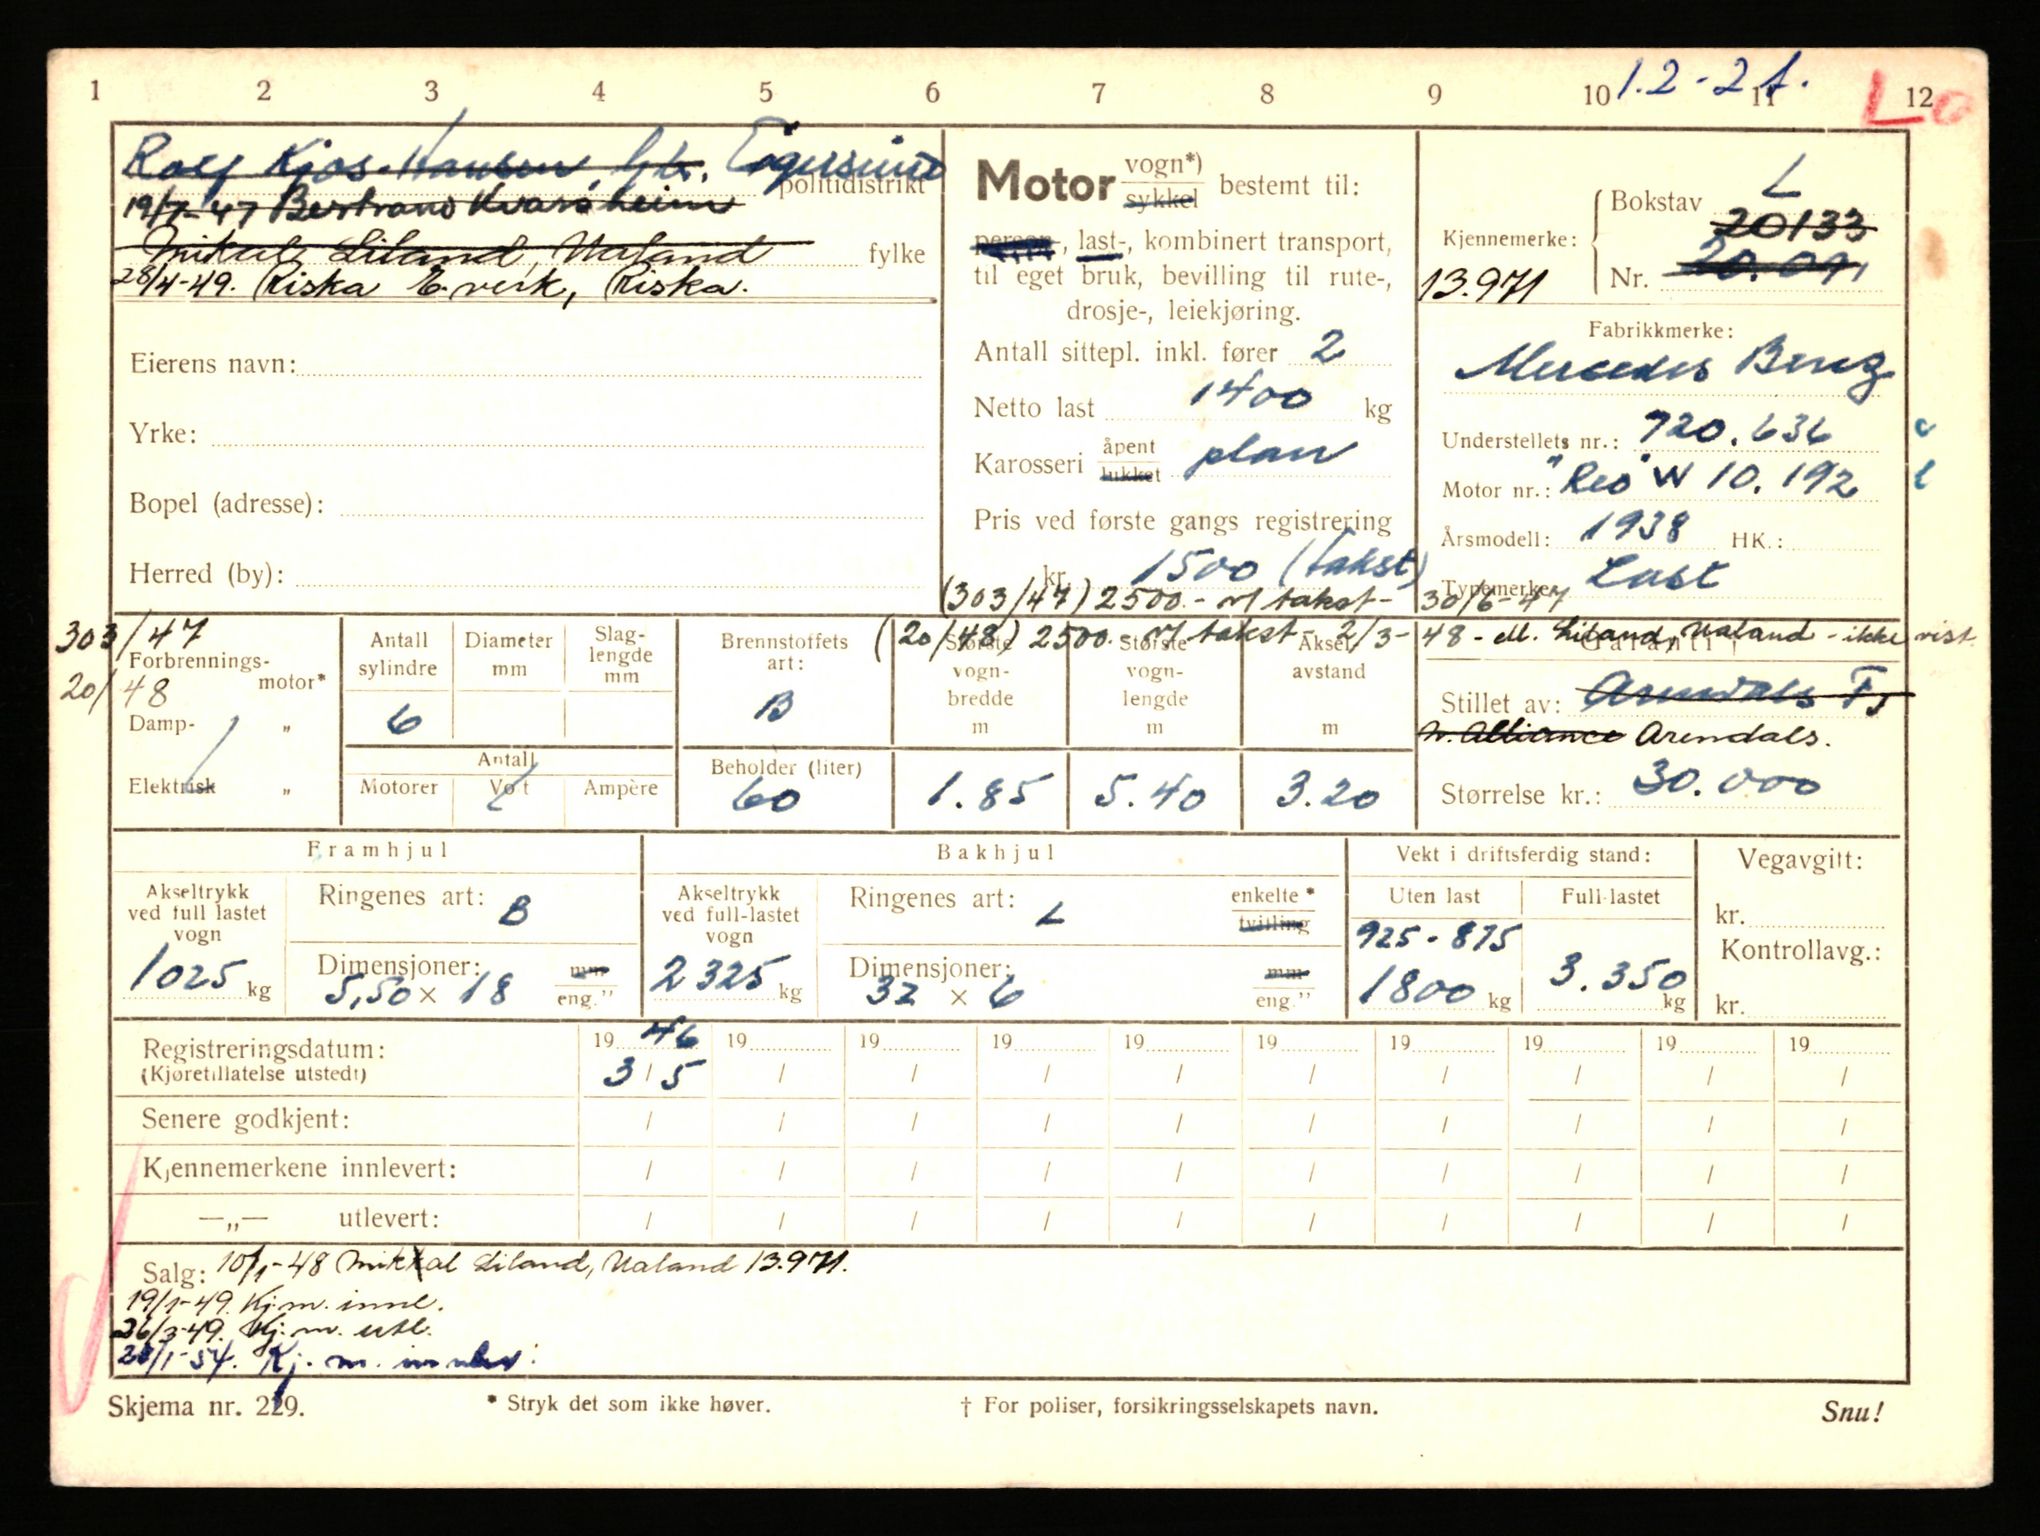 1 2 3 4 5 6 7 8 9 10 11 12
1.2-2
L
Rolf Kjos-Hansen, Egersund
politidistrikt
19/7-47 Bertrand Kvarsheim
Mikal Liland, Ualand
fylke
28/4-49. Riska E.verk, Riska.
Eierens navn:
Yrke:
Bopel (adresse):
Herred (by):
Motor vogn*) sykkel bestemt til:
person-, last-, kombinert transport,
til eget bruk, bevilling til rute-,
drosje-, leiekjøring.
Antall sittepl. inkl. fører 2
Netto last 1400 kg
Karosseri åpent lukket plan
Pris ved første gangs registrering
kr. 1500 (takst)
(303/47) 2500.- takst- 30/6-47
Kjennemerke:
Bokstav L
20133
Nr. 20.091
13.971
Fabrikkmerke:
Mercedes Benz
Understellets nr.: 720.636
Motor nr.: "Reo" W 10.192
Årsmodell: 1938 HK.:
Typemerke: Last
303/47
20/48
(20/48) 2500.- takst- 2/3-48 - M. Liland, Ualand - ikke vist
Forbrennings-
motor*
Damp- „
Elektrisk „
Antall sylindre
6
Diameter mm
Slag-lengde mm
Antall
Motorer Volt Ampère
Brennstoffets art:
B
Beholder (liter)
60
Største vogn-bredde m
1.85
Største vogn-lengde m
5.40
Aksel avstand m
3.20
Garanti †
Stillet av: Arendals Fs
Alliance Arendals.
Størrelse kr.: 30.000
Framhjul
Akseltrykk ved full lastet vogn
1025 kg
Ringenes art: B
Dimensjoner: mm
5,50 × 18 eng."
Bakhjul
Akseltrykk ved full-lastet vogn
2325 kg
Ringenes art: L enkelte* tvilling
Dimensjoner: mm
32 × 6 eng."
Vekt i driftsferdig stand:
Uten last Full-lastet
925 - 875
1800 kg 3.350 kg
Vegavgift:
kr.
Kontrollavg.:
kr.
Registreringsdatum: 1946 19 19 19 19 19 19 19 19 19
(Kjøretillatelse utstedt) 3/5 / / / / / / / / /
Senere godkjent: / / / / / / / / / /
Kjennemerkene innlevert: / / / / / / / / / /
—„— utlevert: / / / / / / / / / /
Salg: 10/1-48 Mikkal Liland, Ualand 13.971.
19/1-49. Kj.m. innl.
26/3-49. Kj.m. utl.
Kj. m. innlev.
Skjema nr. 229.
* Stryk det som ikke høver.
† For poliser, forsikringsselskapets navn.
Snu!